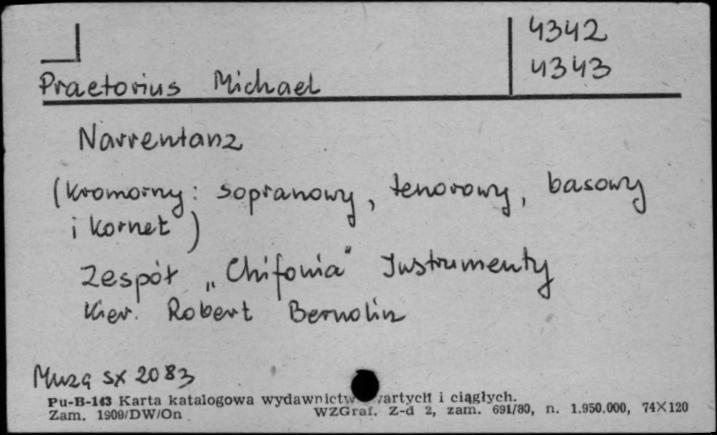 4342
4343
Praetorius Michael
Narrentanz
(Kromorny: sopranowy, tenorowy, basowy
i kornet)
Zespół „Chifonia" Instrumenty
Kier. Robert Bernolin
Muza SX 2083
Pu-B-143 Karta katalogowa wydawnictw zwartych i ciągłych.
Zam. 1909/DW/On WZGraf. Z-d 2, zam. 691/80, n. 1.950.000, 74X120